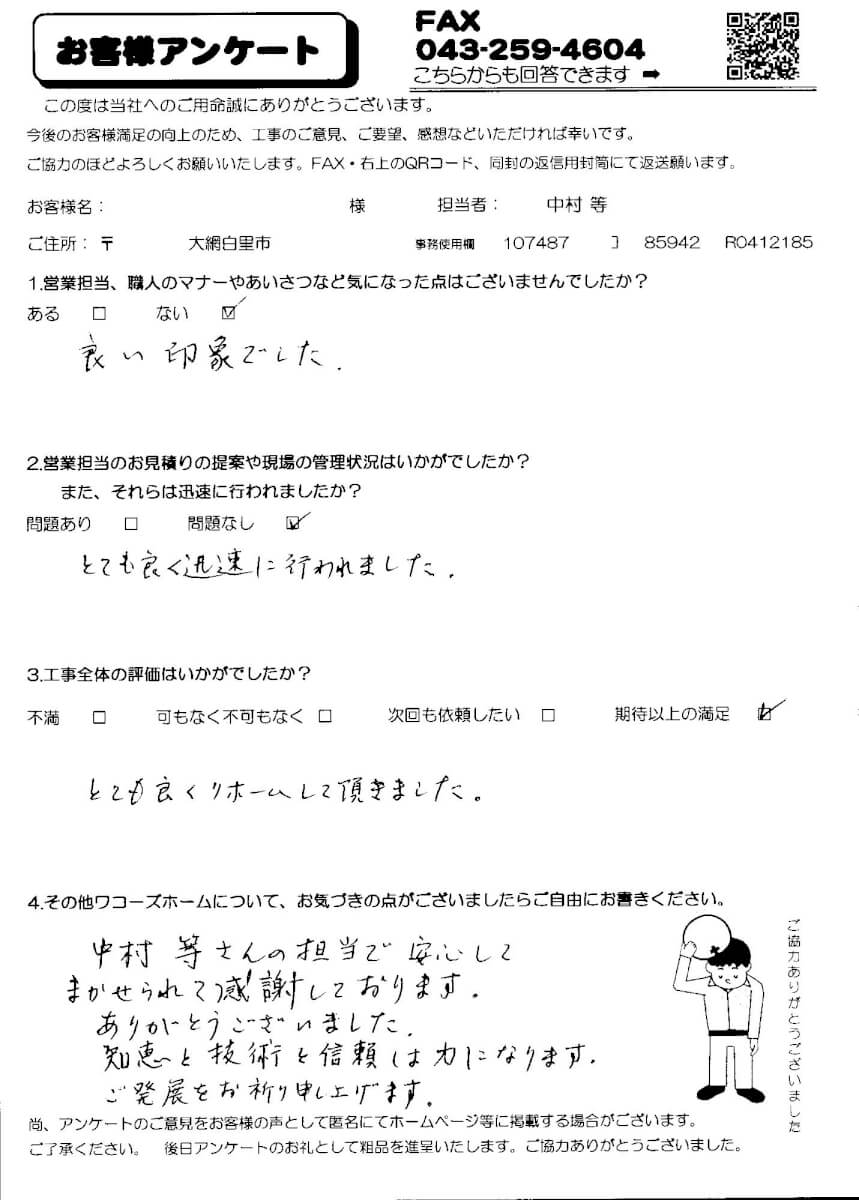 お客様アンケート
FAX
043-259-4604
こちらからも回答できます ➡
この度は当社へのご用命誠にありがとうございます。
今後のお客様満足の向上のため、工事のご意見、ご要望、感想などいただければ幸いです。
ご協力のほどよろしくお願いいたします。FAX・右上のQRコード、同封の返信用封筒にて返送願います。
お客様名： 様 担当者： 中村 等
ご住所：〒 大網白里市 事務使用欄 107487 ] 85942 R0412185
1.営業担当、職人のマナーやあいさつなど気になった点はございませんでしたか？
ある □ ない ☑
良い印象でした.
2.営業担当のお見積りの提案や現場の管理状況はいかがでしたか？
また、それらは迅速に行われましたか？
問題あり □ 問題なし ☑
とても良く迅速に行われました.
3.工事全体の評価はいかがでしたか？
不満 □ 可もなく不可もなく □ 次回も依頼したい □ 期待以上の満足 ☑
とても良くリホームして頂きました。
4.その他ワコーズホームについて、お気づきの点がございましたらご自由にお書きください。
中村 等さんの担当で安心して
まかせられて感謝しております.
ありがとうございました.
知恵と技術と信頼は力になります.
ご発展をお祈り申し上げます.
ご協力ありがとうございました
尚、アンケートのご意見をお客様の声として匿名にてホームページ等に掲載する場合がございます。
ご了承ください。 後日アンケートのお礼として粗品を進呈いたします。ご協力ありがとうございました。